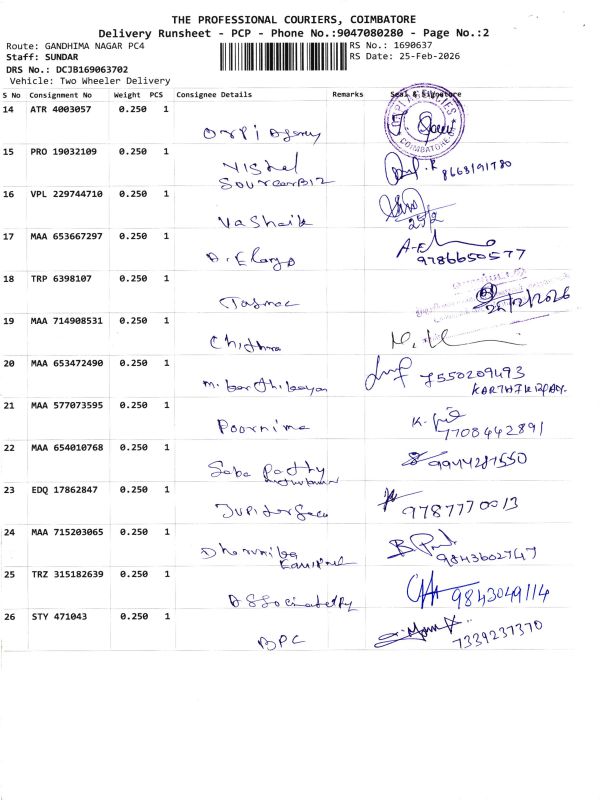 THE PROFESSIONAL COURIERS, COIMBATORE
Delivery Runsheet - PCP - Phone No.:9047080280 - Page No.:2
Route: GANDHIMA NAGAR PC4
RS No.: 1690637
Staff: SUNDAR
RS Date: 25-Feb-2026
DRS No.: DCJB169063702
Vehicle: Two Wheeler Delivery
S No Consignment No Weight PCS Consignee Details Remarks Seal & Signature
14 ATR 4003057 0.250 1
COIMBATORE
15 PRO 19032109 0.250 1
Vishal 8663191780
16 VPL 229744710 0.250 1
Vashaik 25/2
17 MAA 653667297 0.250 1
A. Elango A-E 9786650577
18 TRP 6398107 0.250 1
Tasmac 25/2/2026
19 MAA 714908531 0.250 1
Chithra
20 MAA 653472490 0.250 1
7550209493
21 MAA 577073595 0.250 1
Poornima 7708442891
22 MAA 654010768 0.250 1
9944281550
23 EDQ 17862847 0.250 1
9787770013
24 MAA 715203065 0.250 1
9843602747
25 TRZ 315182639 0.250 1
9843049114
26 STY 471043 0.250 1
BPC 7339237370